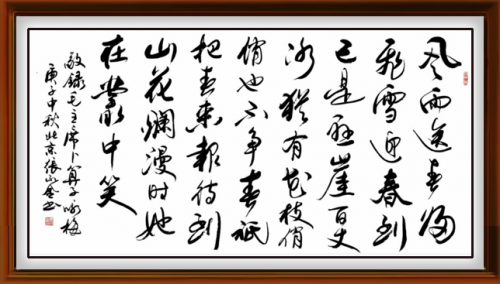 风雨送春归
飛雪迎春到
已是悬崖百丈
冰犹有花枝俏
俏也不争春祇
把春来報待到
山花爛漫时她
在叢中笑
敬録毛主席卜算子咏梅
庚子中秋北京张书